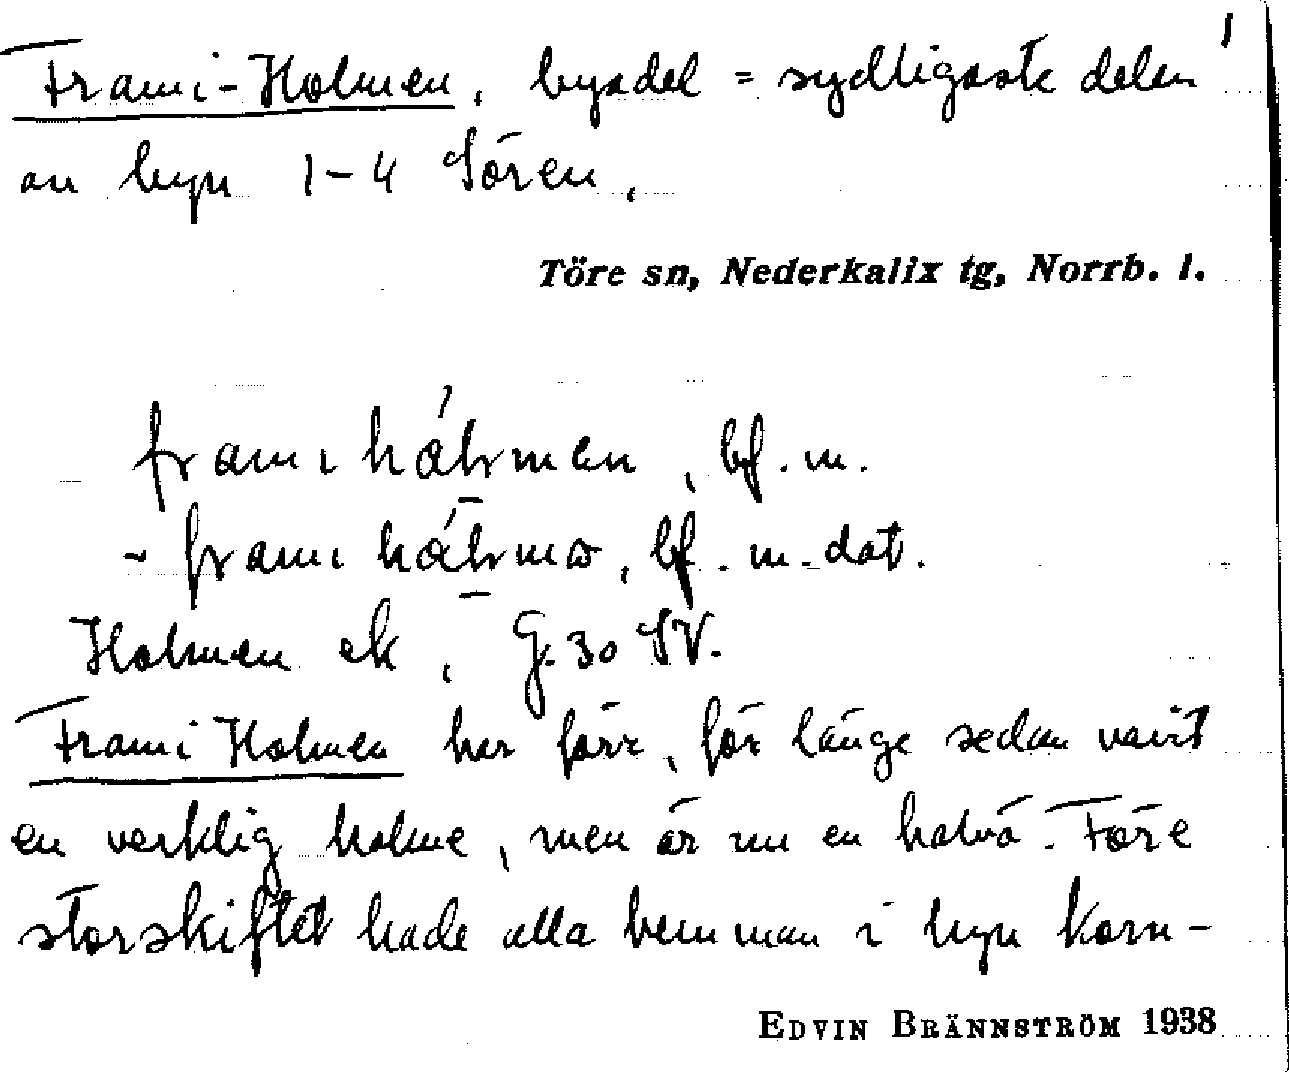 1
Frami-Holmen, bysdel = sydligaste delen
av byn 1-4 Sören.
Töre sn, Nederkalix tg, Norrb. l.
, bf. m.
~ , bf. m. dat.
Holmen ek, G. 30 SV.
Frami Holmen har förr, för länge sedan varit
en verklig holme, men är nu en halvö. Före
storskiftet hade alla hemman i byn korn-
EDVIN BRÄNNSTRÖM 1938